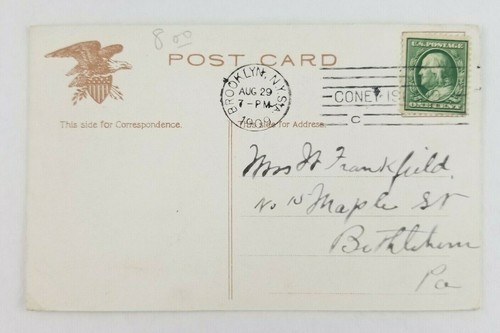 8.00
POST CARD
BROOKLYN, N.Y. STA.
AUG 29
7-PM
1909
CONEY IS
C
U.S. POSTAGE
ONE CENT
This side for Correspondence.
This side for Address.
Mrs W Frankfield.
No 15 Maple St
Bethlehem
Pa